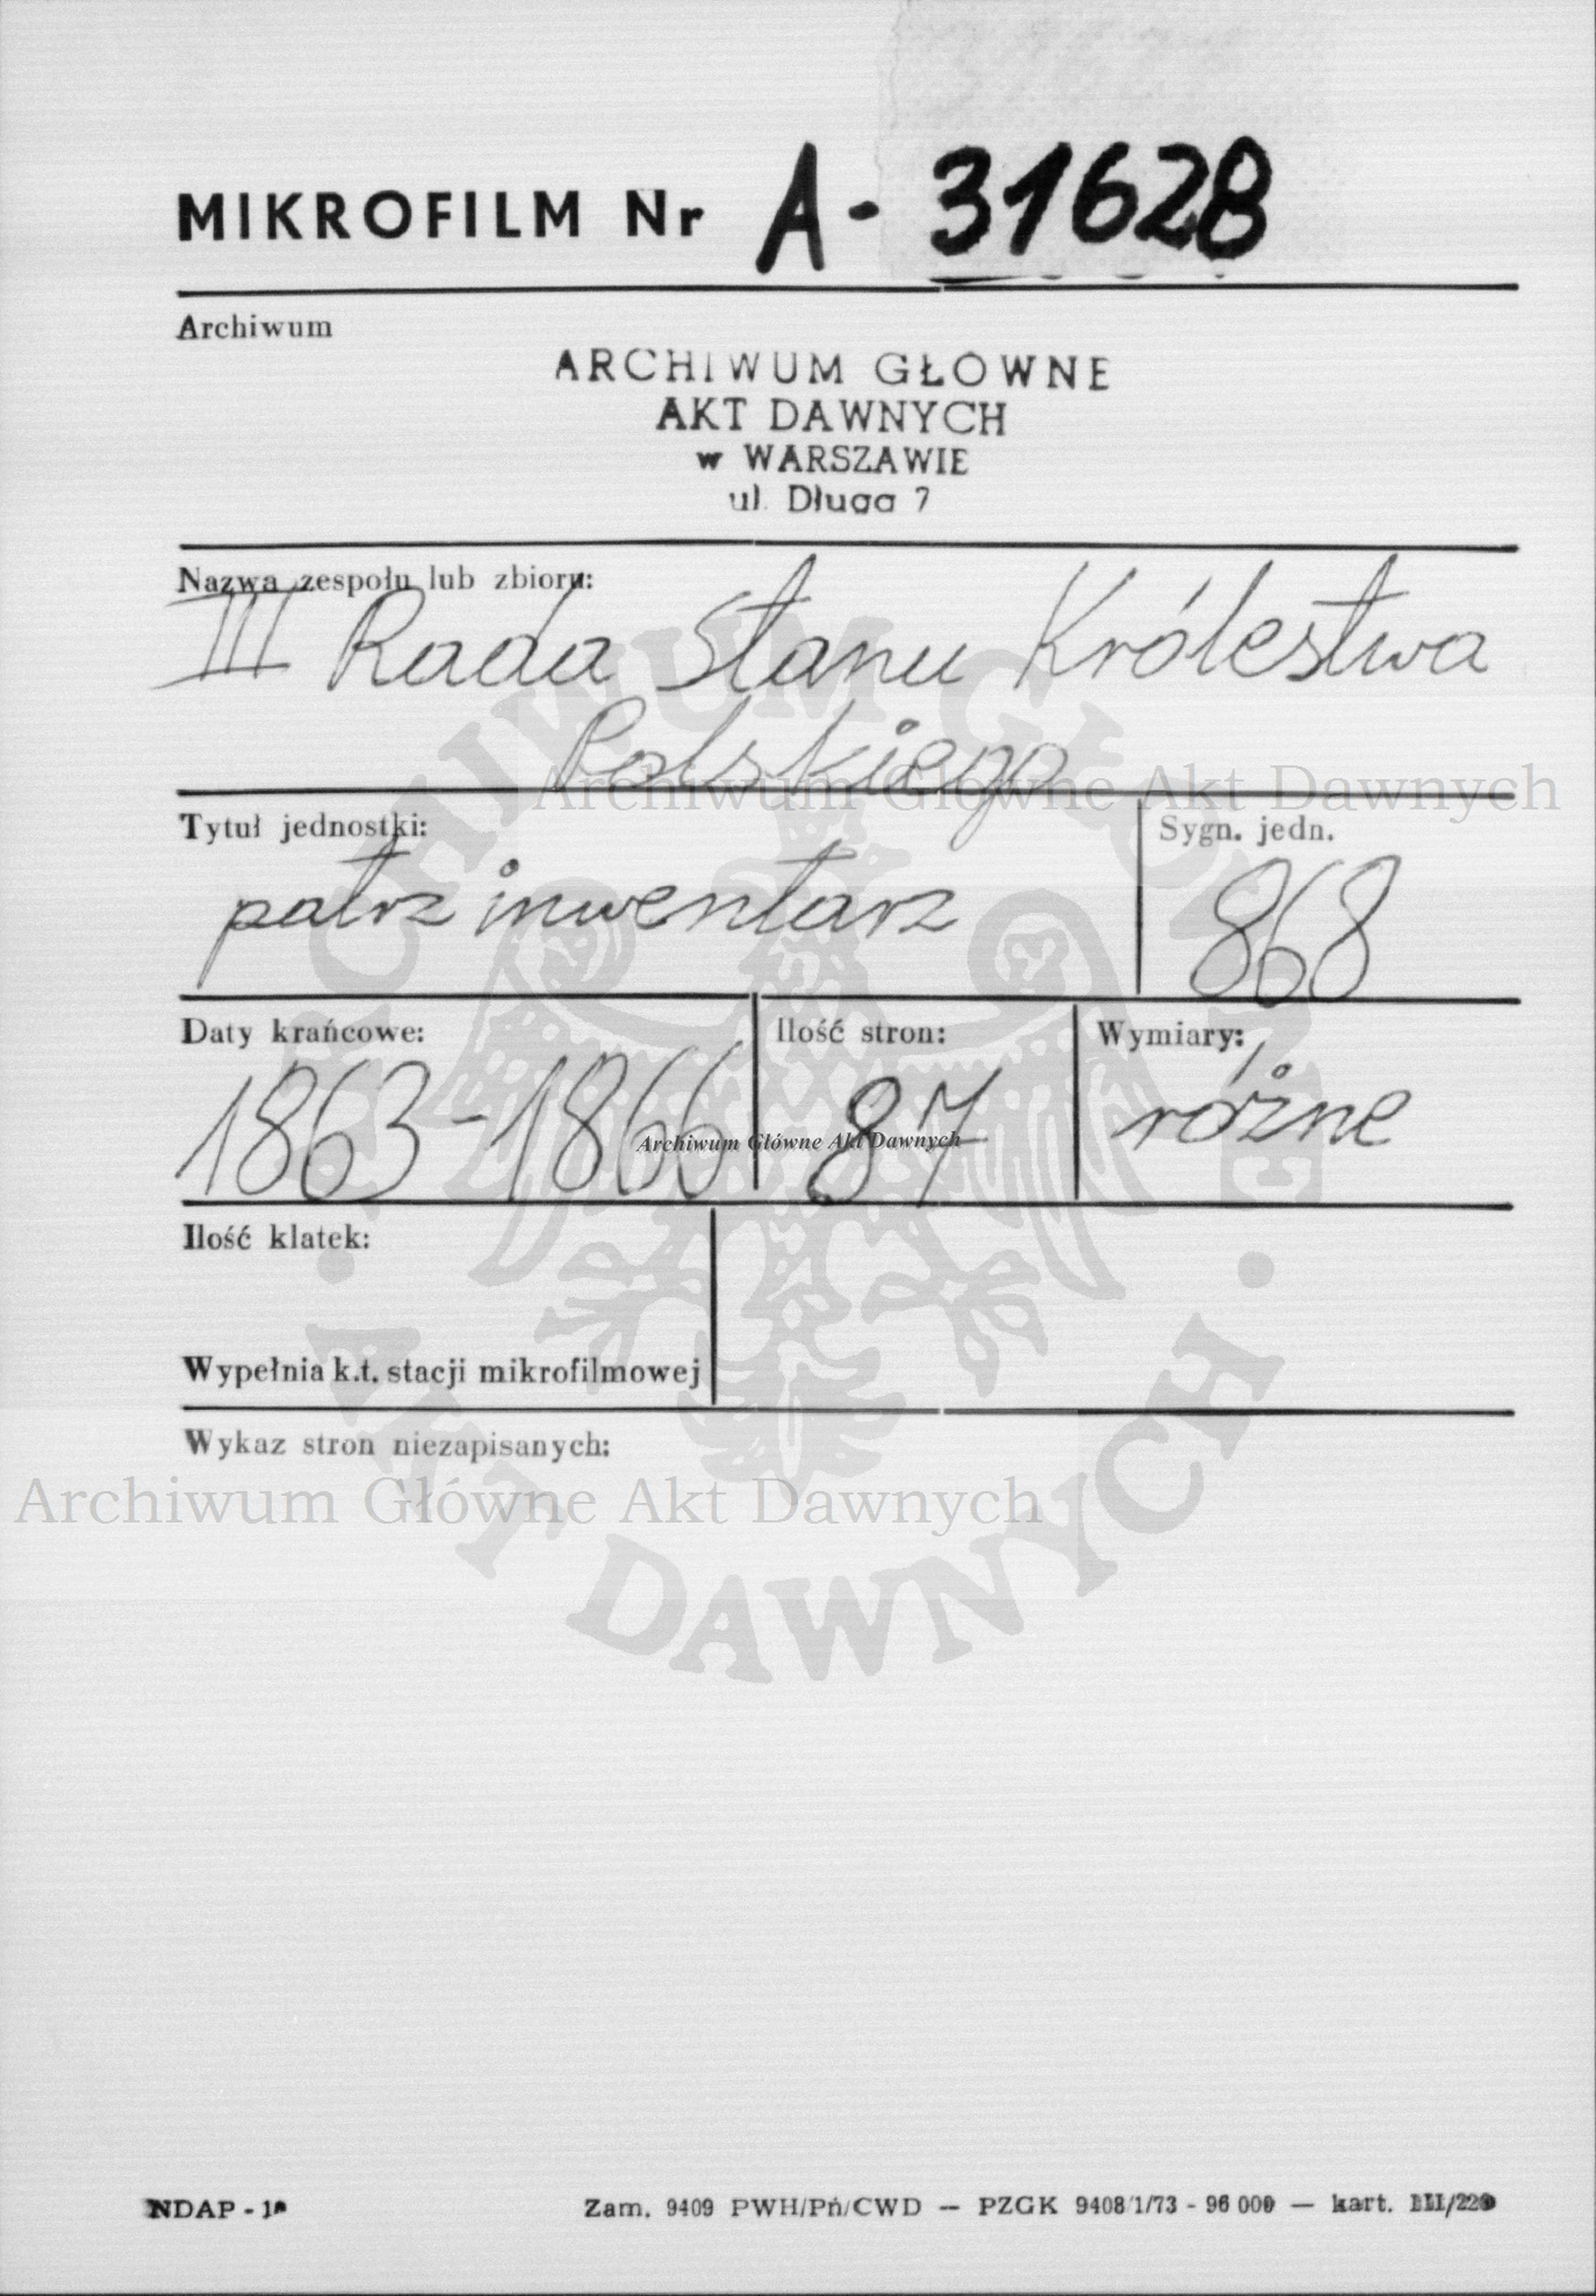 MIKROFILM Nr A-31628
Archiwum
ARCHIWUM GŁOWNE
AKT DAWNYCH
w WARSZAWIE
ul. Długa 7
Nazwa zespołu lub zbioru:
III Rada Stanu Królestwa
Polskiego
Archiwum Główne Akt Dawnych
Tytuł jednostki:
Sygn. jedn.
patrz inwentarz
868
Daty krańcowe:
Ilość stron:
Wymiary:
1863-1866
87
różne
Archiwum Główne Akt Dawnych
Ilość klatek:
Wypełnia k.t. stacji mikrofilmowej
Wykaz stron niezapisanych:
Archiwum Główne Akt Dawnych
ARCHIWUM GŁÓWNE · AKT DAWNYCH ·
NDAP - 1a
Zam. 9409 PWH/Pń/CWD — PZGK 9408/1/73 - 96 000 — kart. III/220